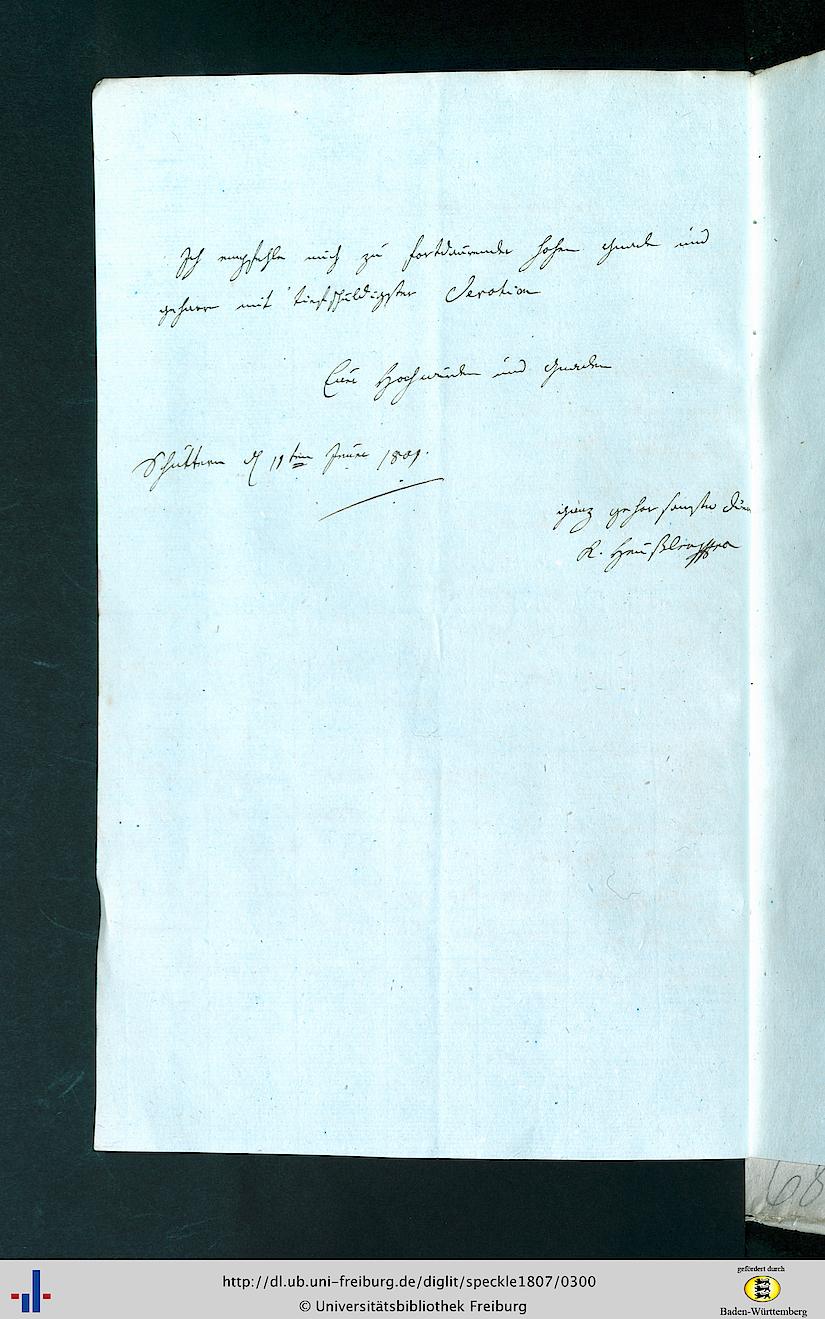 Ich empfehle mich zu fortdaurender hohen Gnade und
geharre mit tiefschuldigster Devotion
Euer Hochwürden und Gnaden
Schuttern d 11ten 1809.
ganz gehorsamster
K.
68
http://dl.ub.uni-freiburg.de/diglit/speckle1807/0300
© Universitätsbibliothek Freiburg
gefördert durch
Baden-Württemberg